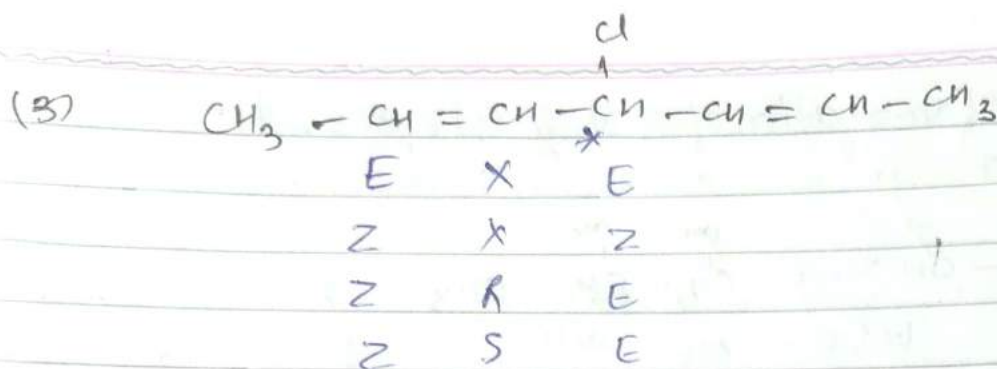 Cl
(3) CH3 - CH = CH - CH - CH = CH - CH3
*
E X E
Z X Z
Z R E
Z S E